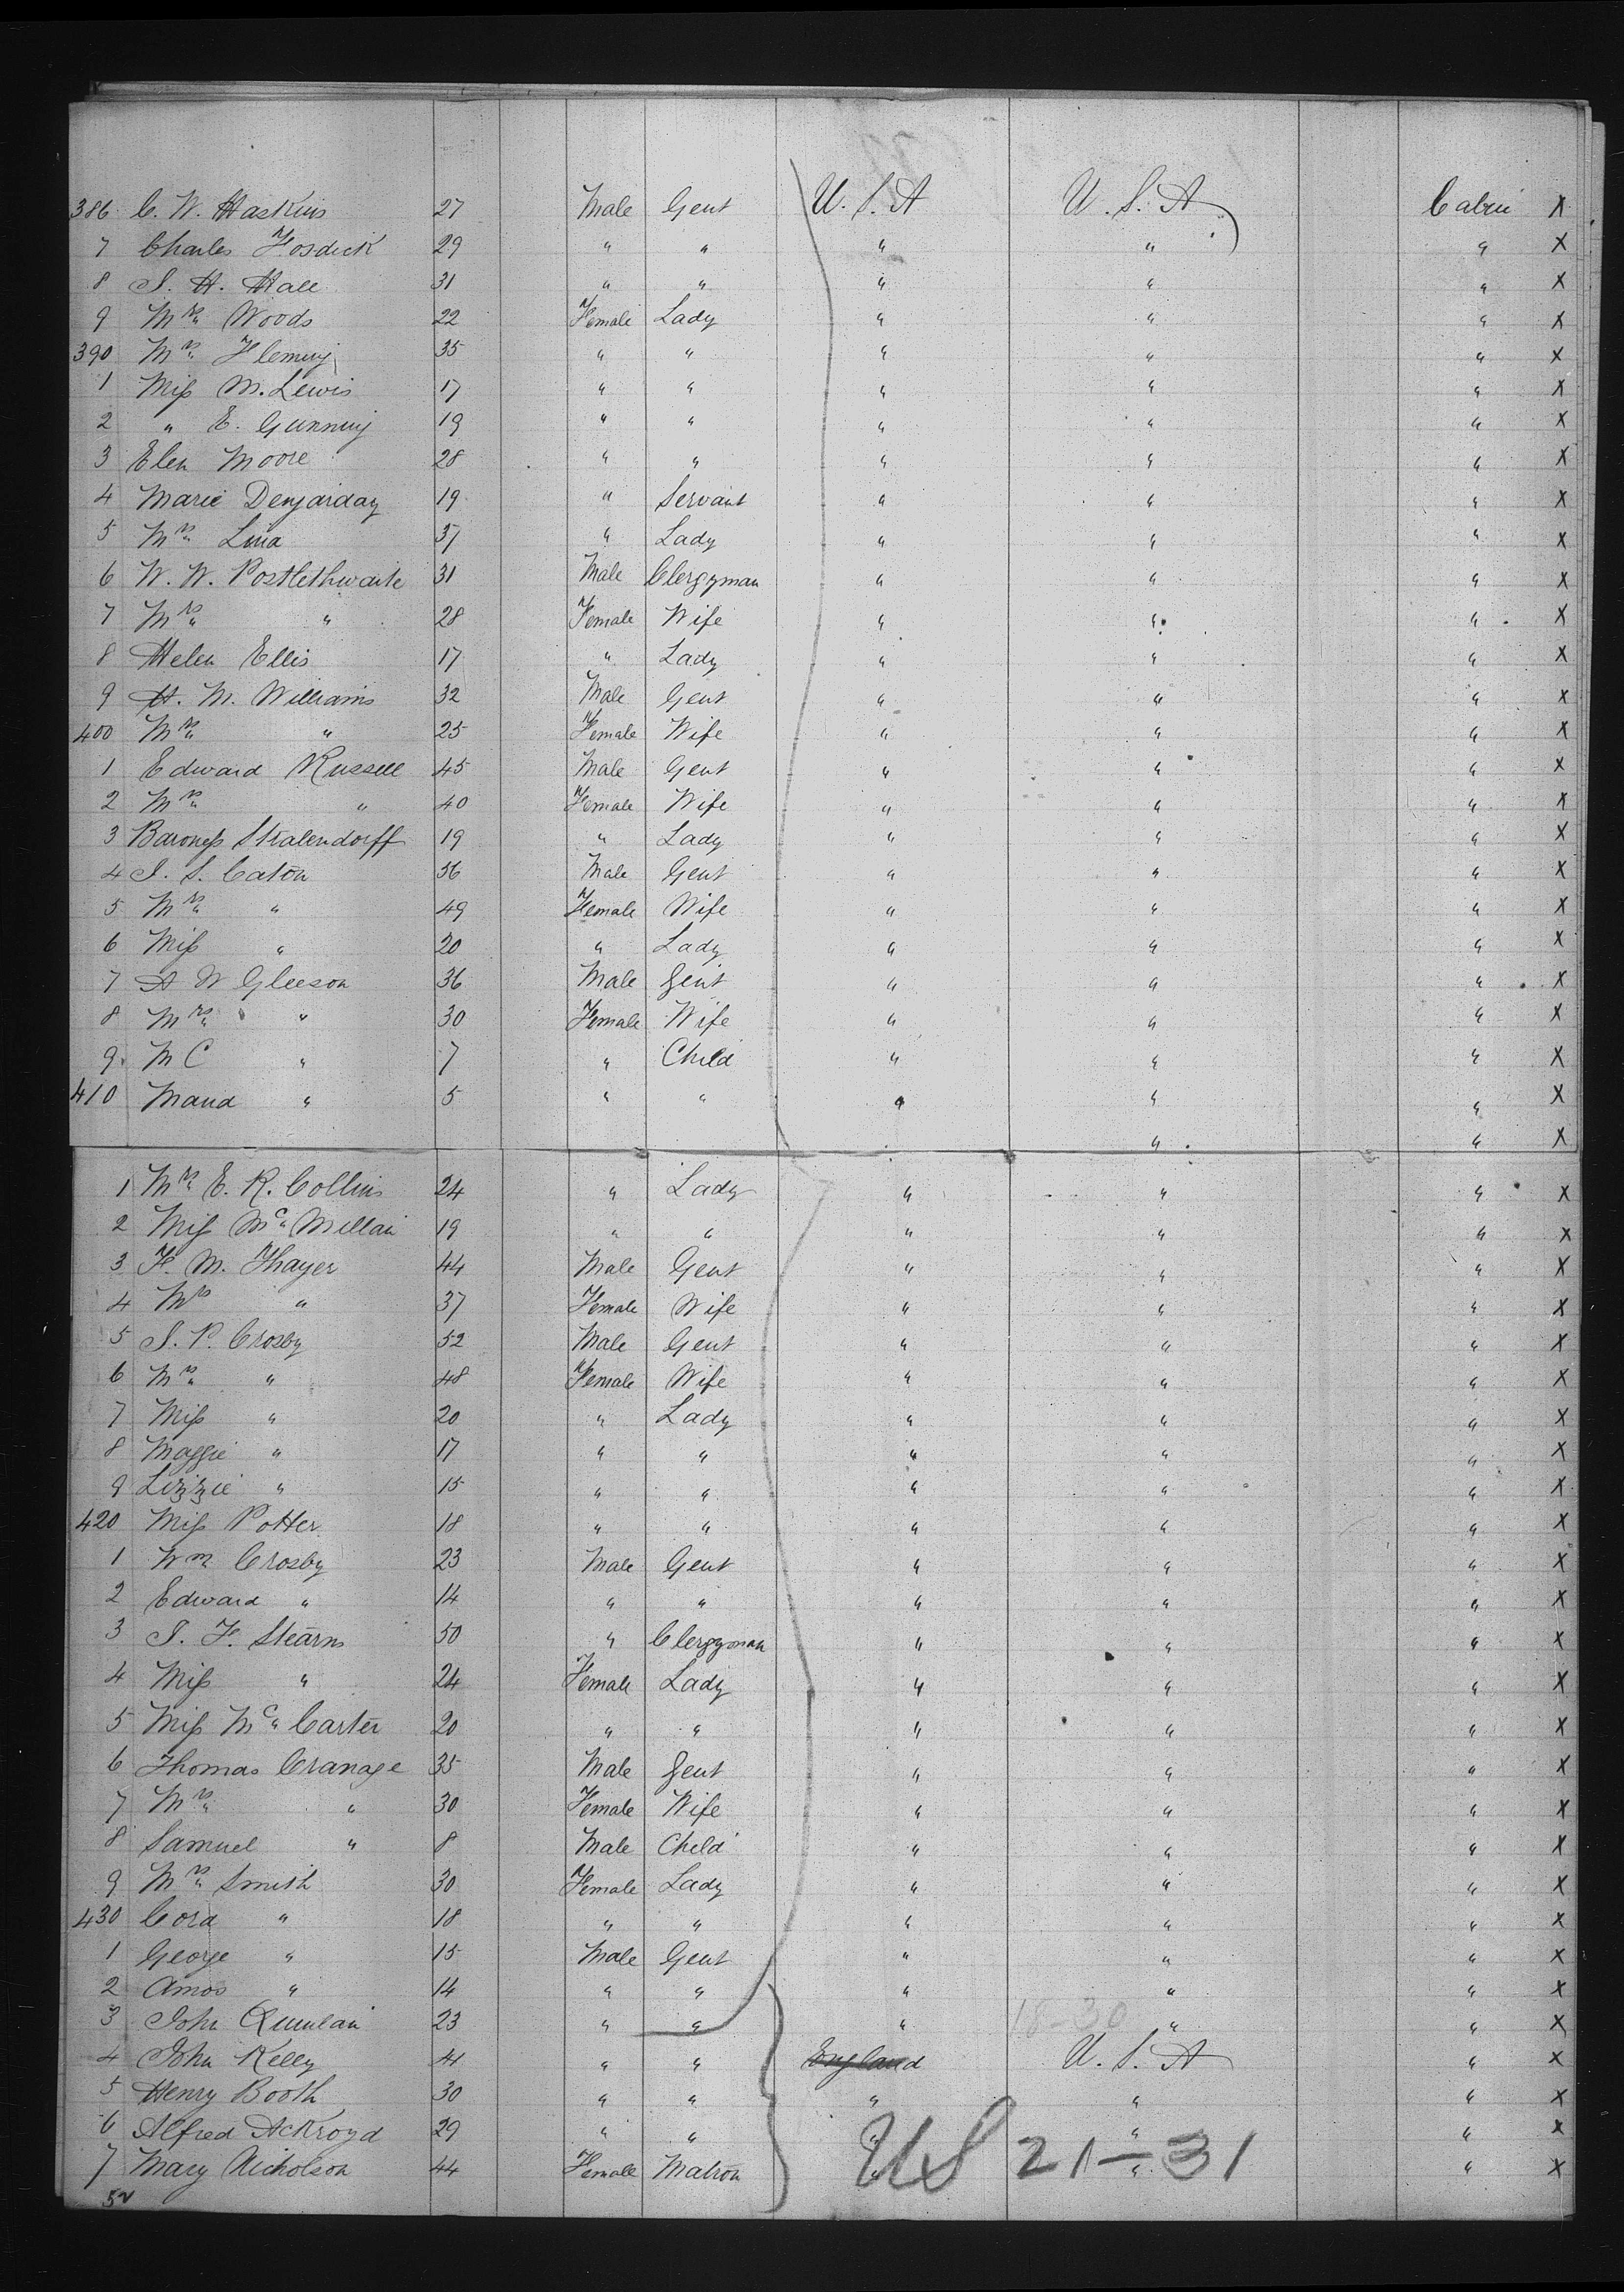 386 C. W. Haskins 27 Male Gent U.S.A U.S.A Cabin X
7 Charles Fosdick 29 " " " " " X
8 S. H. Hall 31 " " " " " X
9 Mrs Woods 22 Female Lady " " " X
390 Mrs Fleming 35 " " " " " X
1 Miss M. Lewis 17 " " " " " X
2 " E. Gunning 19 " " " " " X
3 Elen Moore 28 " " " " " X
4 Marie 19 " Servant " " " X
5 Mrs Lina 37 " Lady " " " X
6 W. W. Postlethwaite 31 Male Clergyman " " " X
7 Mrs " 28 Female Wife " " " X
8 Helen Ellis 17 " Lady " " " X
9 H. M. Williams 32 Male Gent " " " X
400 Mrs " 25 Female Wife " " " X
1 Edward Russell 45 Male Gent " " " X
2 Mrs " 40 Female Wife " " " X
3 Baroness Stralendorff 19 " Lady " " " X
4 J. S. Caton 56 Male Gent " " " X
5 Mrs " 49 Female Wife " " " X
6 Miss " 20 " Lady " " " X
7 A W Gleeson 36 Male Gent " " " X
8 Mrs " 30 Female Wife " " " X
9 M C " 7 " Child " " " X
410 Maud " 5 " " " " " X
" " X
1 Mrs E. R. Collins 24 " Lady " " " X
2 Miss Mc Millan 19 " " " " " X
3 F. M. Thayer 44 Male Gent " " " X
4 Mrs " 37 Female Wife " " " X
5 S. P. Crosby 52 Male Gent " " " X
6 Mrs " 48 Female Wife " " " X
7 Miss " 20 " Lady " " " X
8 Maggie " 17 " " " " " X
9 Lizzie " 15 " " " " " X
420 Miss Potter 18 " " " " " X
1 Wm Crosby 23 Male Gent " " " X
2 Edward " 14 " " " " " X
3 J. F. Stearns 50 " Clergyman " " " X
4 Miss " 24 Female Lady " " " X
5 Miss Mc Carter 20 " " " " " X
6 Thomas Cranage 35 Male Gent " " " X
7 Mrs " 30 Female Wife " " " X
8 Samuel " 8 Male Child " " " X
9 Mrs Smith 30 Female Lady " " " X
430 Cora " 18 " " " " " X
1 George " 15 Male Gent " " " X
2 Amos " 14 " " " " " X
3 John Quinlan 23 " " " 18-30 " " X
4 John Kelly 41 " " England U.S.A " X
5 Henry Booth 30 " " " " " X
6 Alfred Ackroyd 29 " " " " " X
7 Mary Nicholson 44 Female Matron " " " X
US 21-31
52